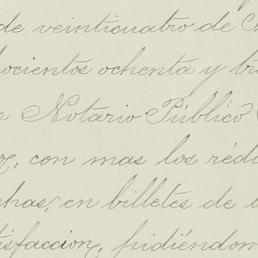 de veinticuatro de
ocientos ochenta y
Notario Público
con mas los rédi
chas, en billetes de
isfaccion, pidiéndom